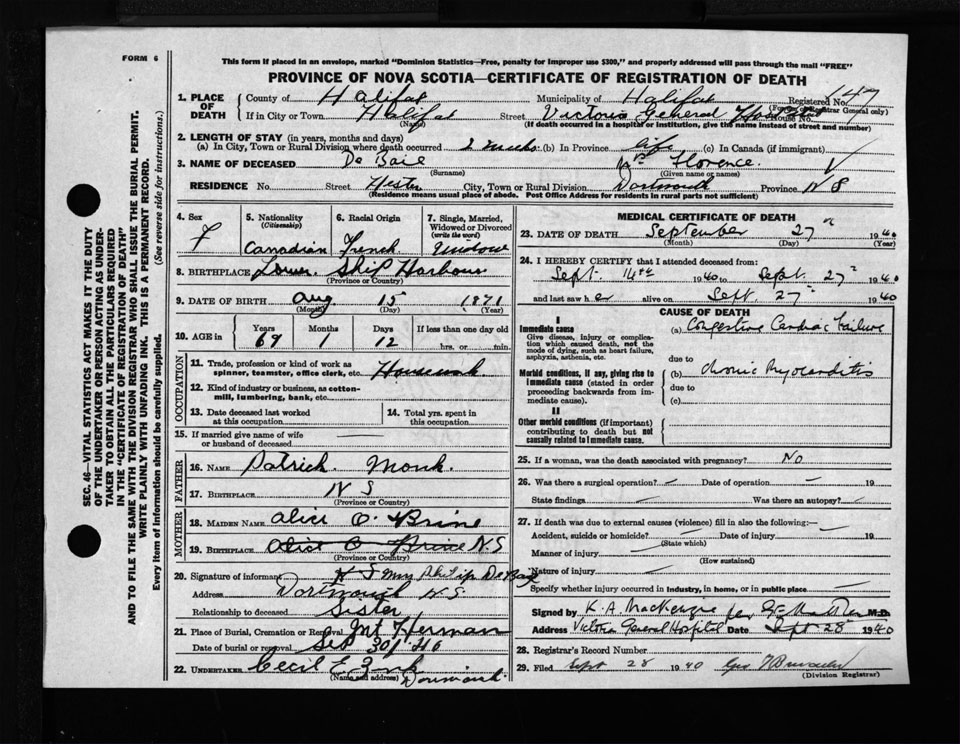 FORM 6
This form if placed in an envelope, marked "Dominion Statistics—Free, penalty for improper use $300," and properly addressed will pass through the mail "FREE"
PROVINCE OF NOVA SCOTIA—CERTIFICATE OF REGISTRATION OF DEATH
1. PLACE OF DEATH County of Halifax Municipality of Halifax Registered No. 147
(For use of Registrar General only)
If in City or Town Halifax Street Victoria General Hospital House No.
(Name) (If death occurred in a hospital or institution, give the name instead of street and number)
2. LENGTH OF STAY (in years, months and days)
(a) In City, Town or Rural Division where death occurred 2 weeks (b) In Province life (c) In Canada (if immigrant)
3. NAME OF DECEASED De Baie Mrs Florence.
(Surname) (Given name or names)
RESIDENCE No. Street Hester City, Town or Rural Division Dartmouth Province N S
(Residence means usual place of abode. Post Office Address for residents in rural parts not sufficient)
4. Sex F
5. Nationality (Citizenship) Canadian
6. Racial Origin French
7. Single, Married, Widowed or Divorced (write the word) Widow
8. BIRTHPLACE Lower. Ship Harbour
(Province or Country)
9. DATE OF BIRTH Aug 15 1871
(Month) (Day) (Year)
10. AGE in Years 69 Months 1 Days 12 If less than one day old hrs. or min.
OCCUPATION
11. Trade, profession or kind of work as spinner, teamster, office clerk, etc. Housework
12. Kind of industry or business, as cotton-mill, lumbering, bank, etc.
13. Date deceased last worked at this occupation
14. Total yrs. spent in this occupation
15. If married give name of wife or husband of deceased —
FATHER
16. NAME Patrick Monk.
17. BIRTHPLACE N S
(Province or Country)
MOTHER
18. MAIDEN NAME Alice O. Brine
19. BIRTHPLACE Alice O Brine N S
(Province or Country)
20. Signature of informant N S Mrs Philip De Baie
Address Dartmouth N. S.
Relationship to deceased Sister
21. Place of Burial, Cremation or Removal Mt Herman
Date of burial or removal Sep 30/ 40
22. UNDERTAKER Cecil E. Zink
(Name and address) Dartmouth
MEDICAL CERTIFICATE OF DEATH
23. DATE OF DEATH September 27th 1940
(Month) (Day) (Year)
24. I HEREBY CERTIFY that I attended deceased from:
Sept. 14th 1940 to Sept. 27th 1940
and last saw her alive on Sept. 27th 1940
CAUSE OF DEATH
I
Immediate cause
Give disease, injury or complication which caused death, not the mode of dying, such as heart failure, asphyxia, asthenia, etc.
(a) Congestive Cardiac Failure
due to
Morbid conditions, if any, giving rise to immediate cause (stated in order proceeding backwards from immediate cause).
(b) Chronic Myocarditis
due to
(c)
II
Other morbid conditions (if important) contributing to death but not causally related to immediate cause.
25. If a woman, was the death associated with pregnancy? No
26. Was there a surgical operation? — Date of operation — 19
State findings — Was there an autopsy? —
27. If death was due to external causes (violence) fill in also the following:—
Accident, suicide or homicide? — Date of injury 19
(State which)
Manner of injury
(How sustained)
Nature of injury
Specify whether injury occurred in Industry, in home, or in public place
Signed by K. A. MacKenzie for M.D.
Address Victoria General Hospital Date Sept 28 1940
28. Registrar's Record Number
29. Filed Sept 28 1940
(Division Registrar)
SEC. 46—VITAL STATISTICS ACT MAKES IT THE DUTY
OF THE UNDERTAKER OR PERSON ACTING AS UNDER-
TAKER TO OBTAIN ALL THE PARTICULARS REQUIRED
IN THE "CERTIFICATE OF REGISTRATION OF DEATH"
AND TO FILE THE SAME WITH THE DIVISION REGISTRAR WHO SHALL ISSUE THE BURIAL PERMIT.
WRITE PLAINLY WITH UNFADING INK. THIS IS A PERMANENT RECORD.
Every item of information should be carefully supplied. (See reverse side for instructions.)